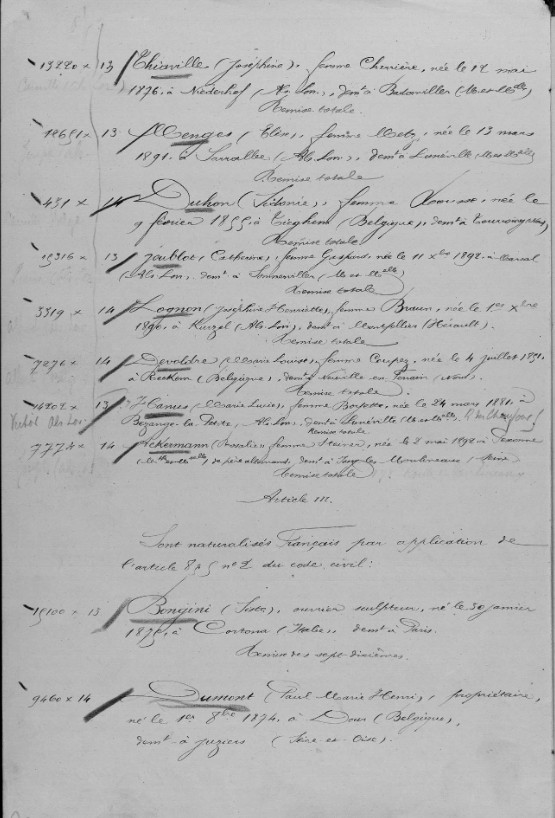 13220 x 13 Thiaville (Joséphine), femme Cherrière, née le 12 mai
1876, à Niederhof (Als. Lon.), demt à Badonviller (M.et Mlle)
Remise totale.
x 13 Wenges femme Metz, née le 13 mars
1891, à (Als. Lon.), demt à Lunéville
Remise totale
431 x 14 Duhon femme née le
9 février 1855, à (Belgique), demt à Tourcoing
Remise totale
15316 x 13 Joublot, Catherine, femme née le 11 Xbre 1892 à
(Als. Lon., demt à Sommerviller (M. et Mlle)
Remise totale
3319 x 14 Lognon (Joséphine Henriette), femme Braun, née le 1er Xbre
1896, à Kurzel (Als. Lon.), demt à Montpellier (Hérault).
Remise totale
7271 x 14 Devoldre (Marie Louise), femme Coupez, née le 4 juillet 1891,
à Rekkem (Belgique), demt à Neuville en Ferrain (Nord).
Remise totale
x 13 Hanes (Marie Lucie), femme née le 24 mars 1881, à
Bezange-la-Petite, Als. Lon., demt à Lunéville
Remise totale
7774 x 14 Ackermann (Rosalie) femme née le 2 mai 1892 à
de père allemand, demt à Issy-les-Moulineaux, Seine
Remise totale
Article III.
Sont naturalisés Français par application de
l'article 8 § 5 n° 2 du code civil:
15100 x 13 Bongini (Sisto), ouvrier sculpteur, né le 30 janvier
1875, à Cortona (Italie), demt à Paris.
Remise des sept-dixièmes.
9460 x 14 Dumont (Paul Marie Henri), propriétaire,
né le 1er 8bre 1874, à Dour (Belgique),
demt à Juziers (Seine-et-Oise).